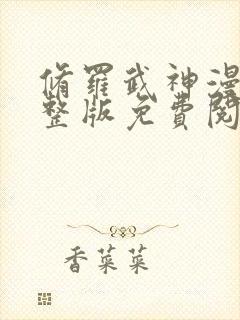 脩羅武神漫
整版免費閱
香菜菜